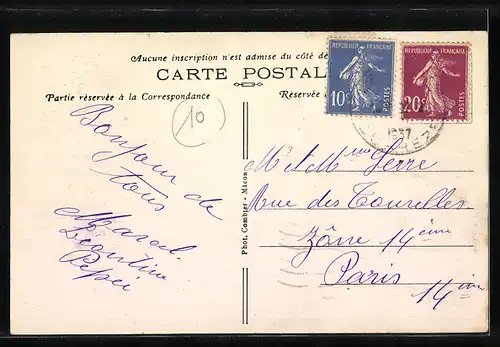 Aucune inscription n'est admise du côté de
CARTE POSTAL
Partie réservée à la Correspondance
Réservée
REPUBLIQUE FRANÇAISE
10c
POSTES
REPUBLIQUE FRANÇAISE
20c
POSTES
1937
10
Bonjour de
tous
Marcel
Léontine
Pépée
Phot. Combier - Macon
M. et Mme Serre
Rue des Tourelles
Zône 14ème
Paris
14ème